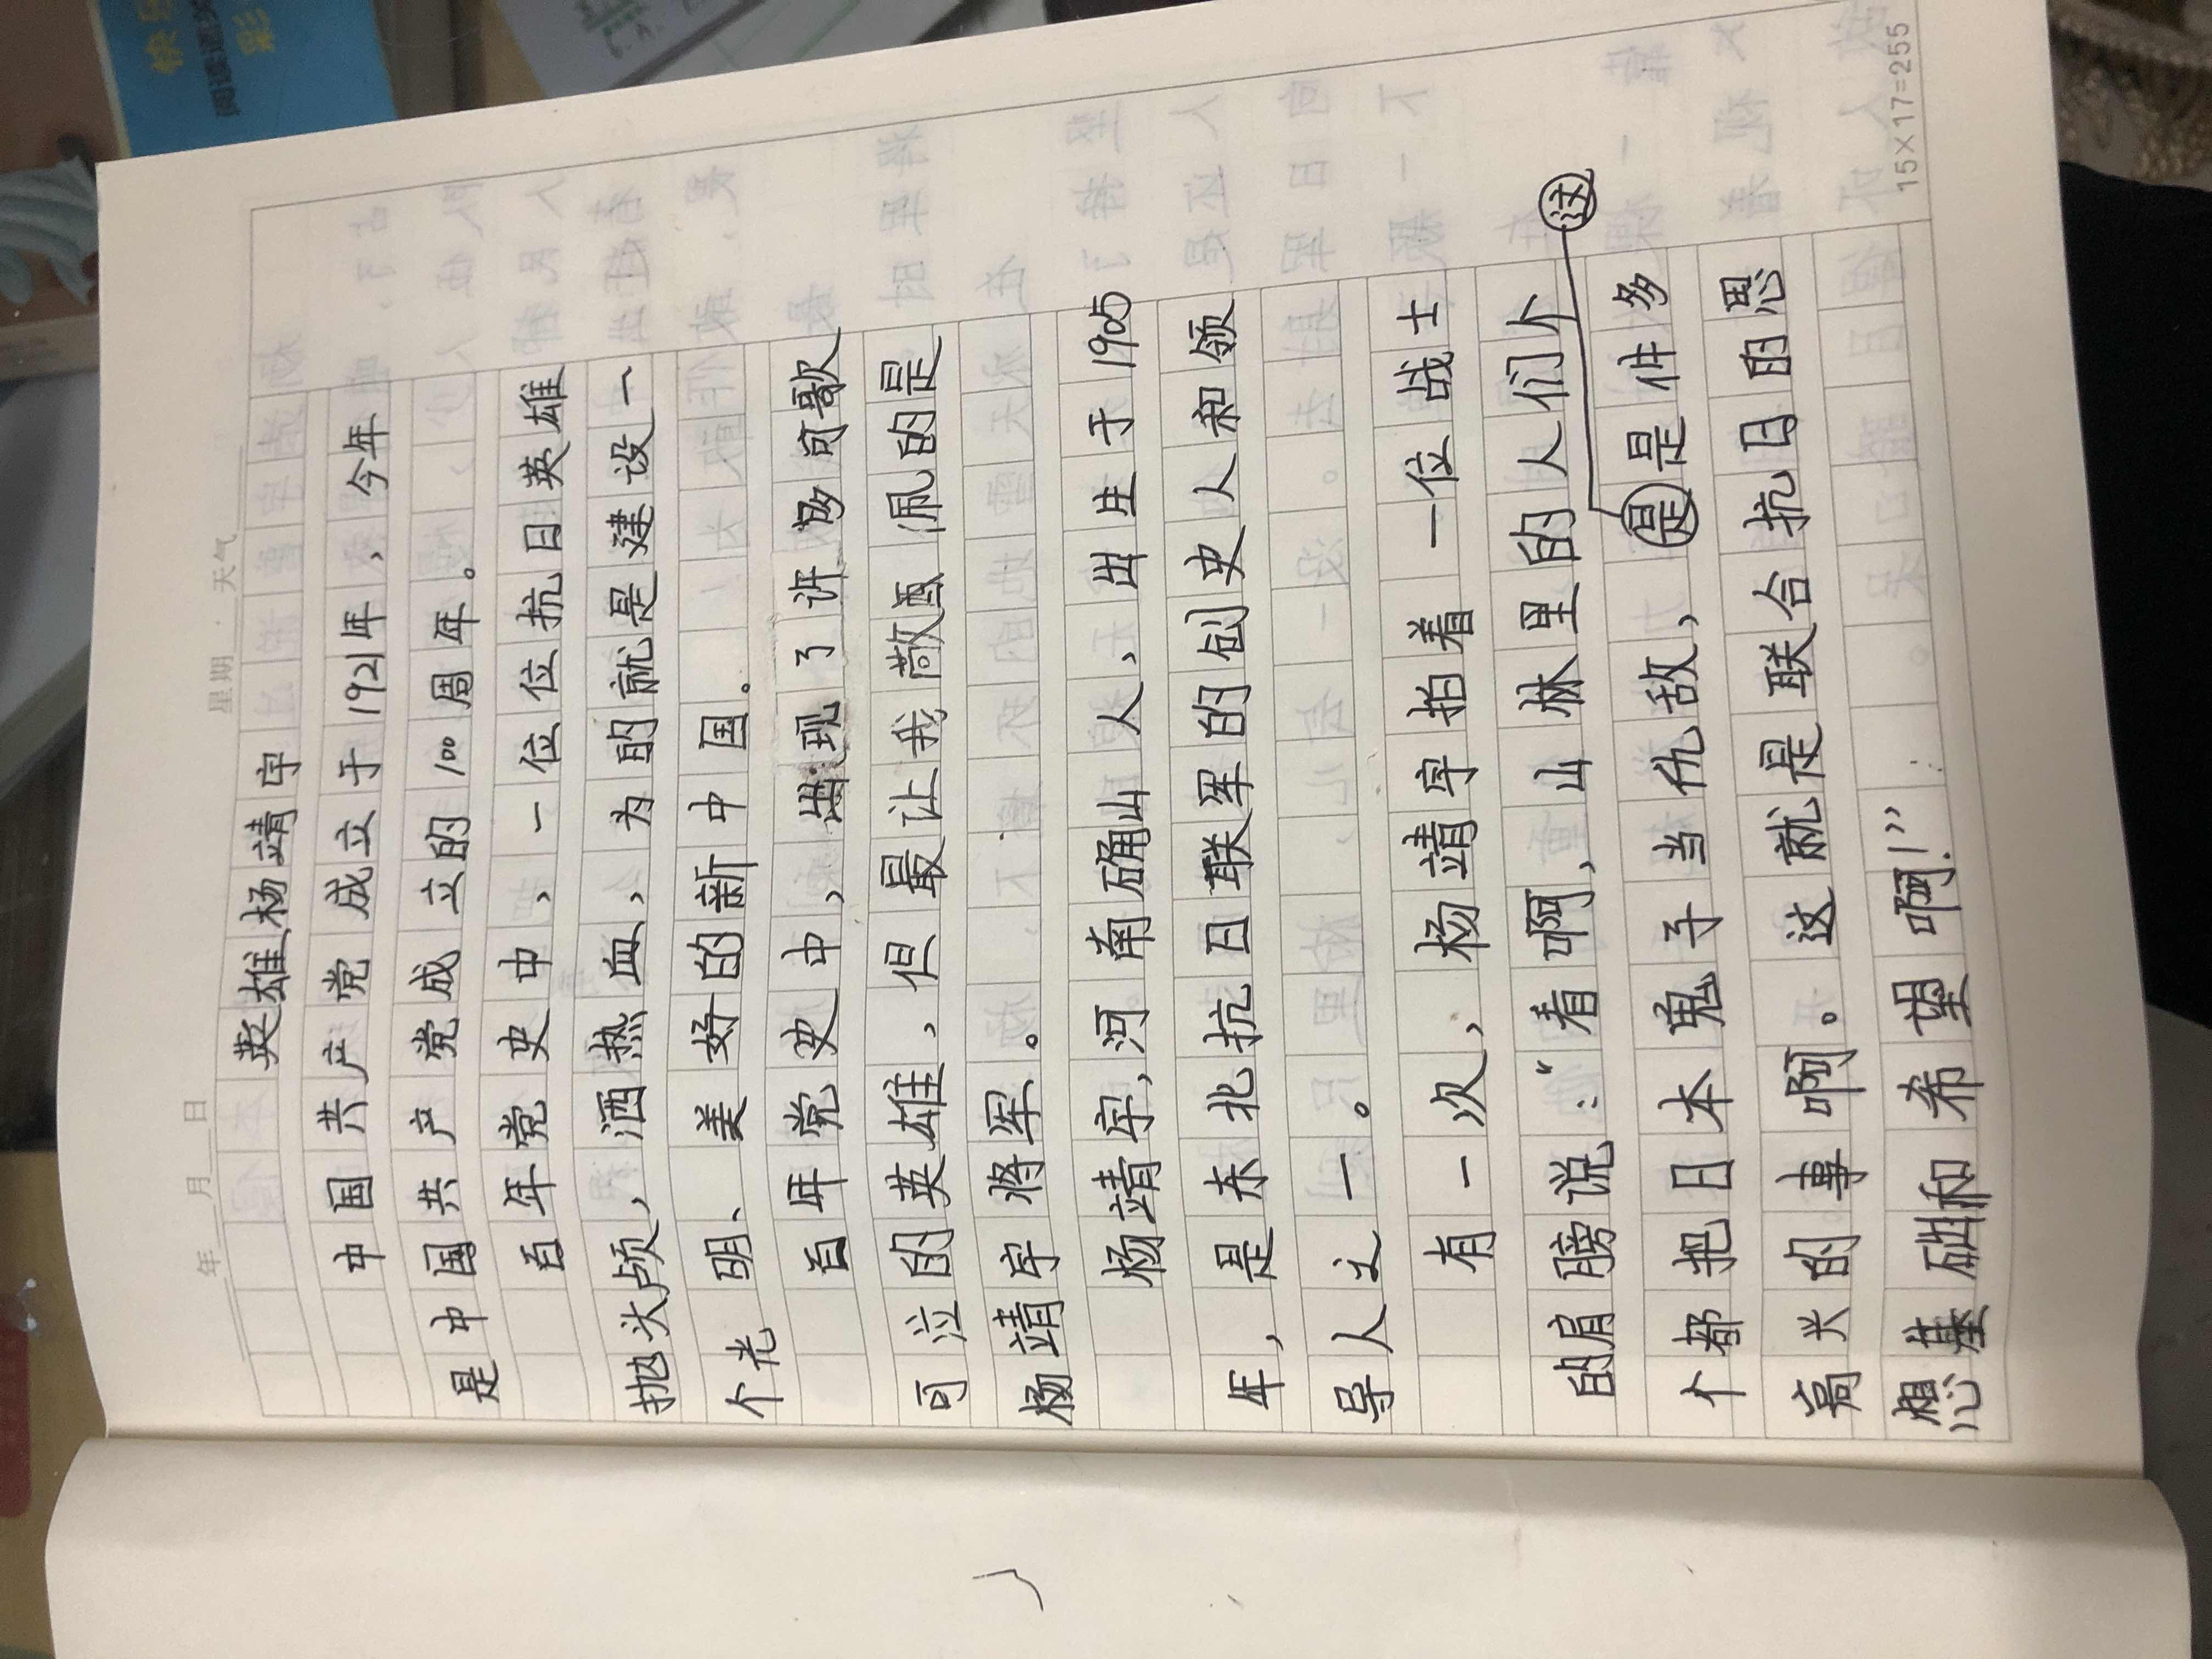 年 月 日 星期 天气
英雄杨靖宇
中国共产党成立于1921年，今年
是中国共产党成立的100周年。
百年党史中，一位位抗日英雄
抛头颅，洒热血，为的就是建设一
个光明、美好的新中国。
百年党史中，出现了许多可歌
可泣的英雄，但最让我敬佩的是
杨靖宇将军。
杨靖宇，河南确山人，出生于1905
年，是东北抗日联军的创史人和领
导人之一。
有一次，杨靖宇拍着一位战士
的肩膀说：“看啊，山林里的人们个
个都把日本鬼子当仇敌，是是件多
这
高兴的事啊。这就是联合抗日的思
想基础和希望啊！”
15×17=255
快乐
阅读递义
彩